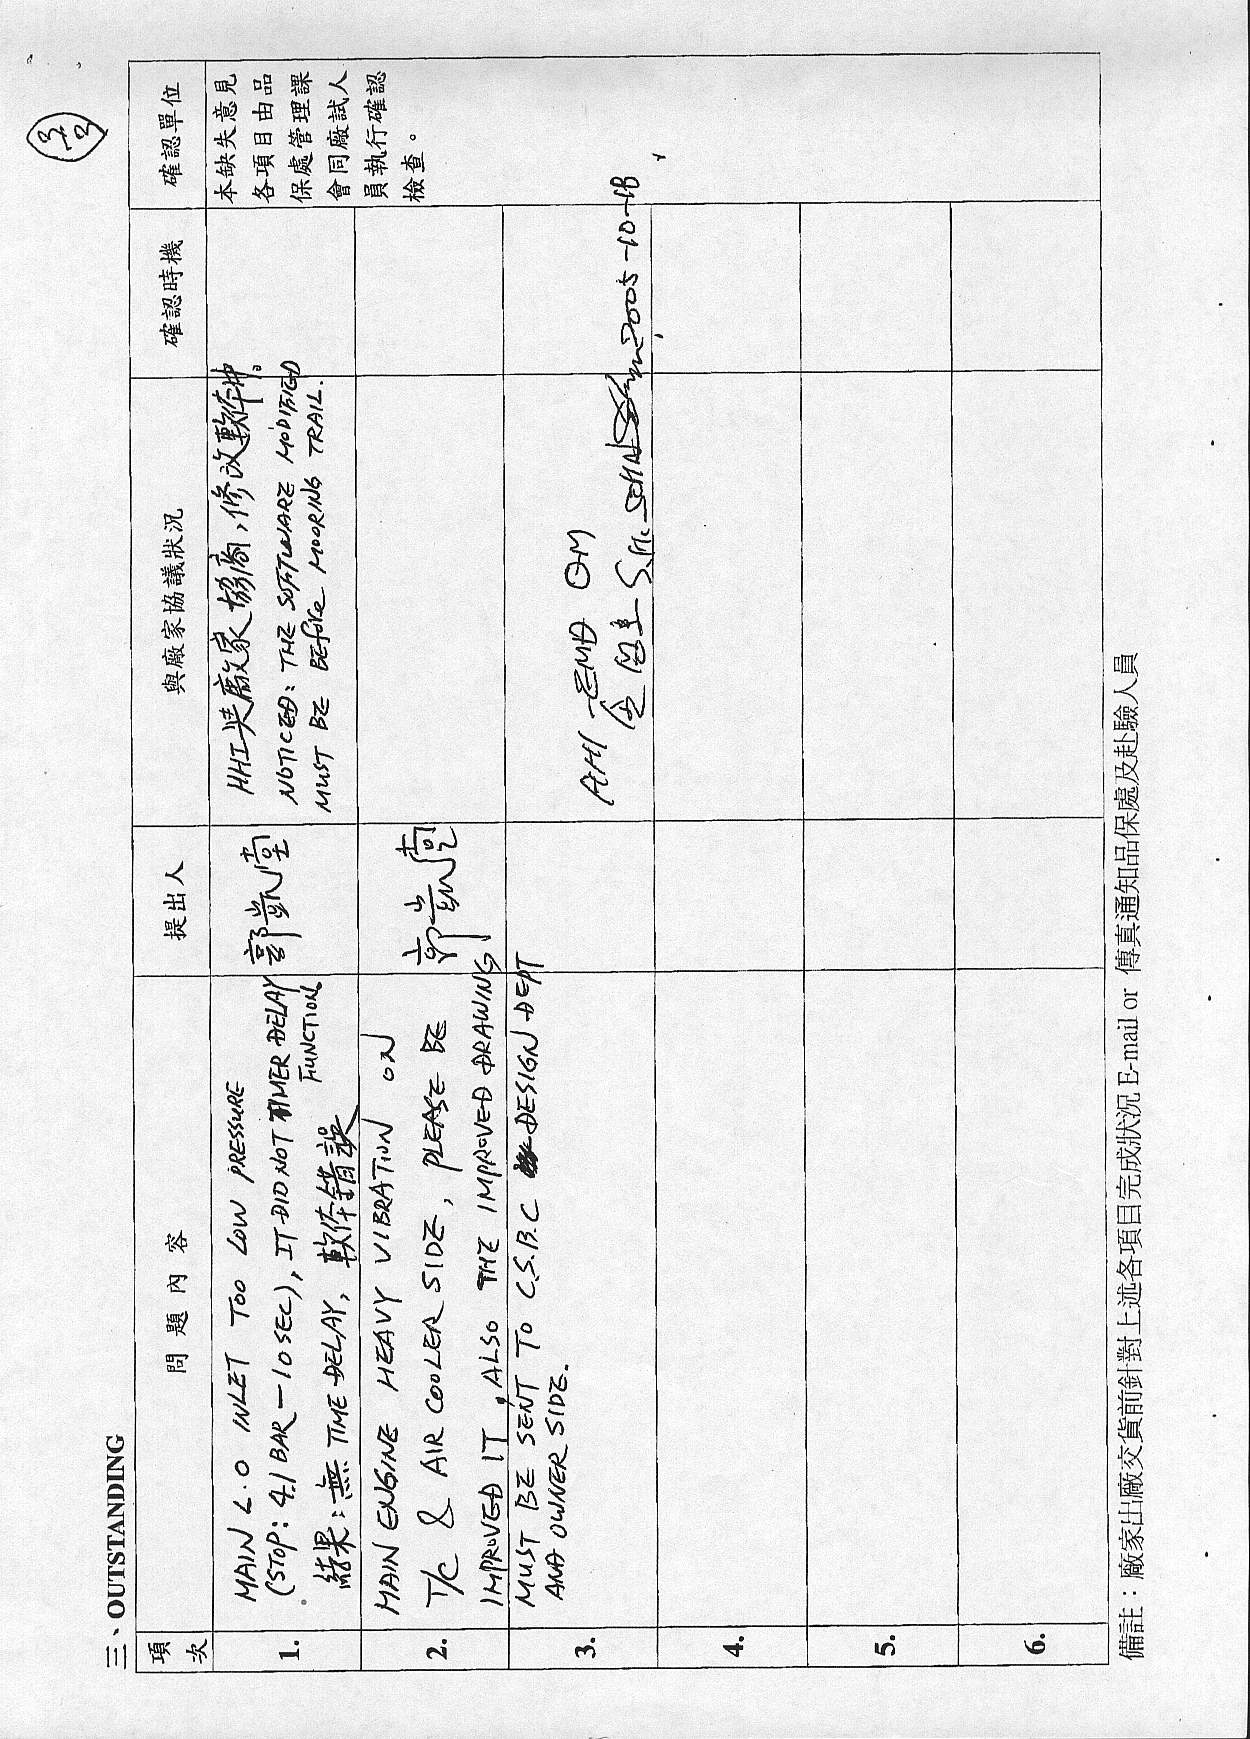 三、OUTSTANDING
項次
問題內容
提出人
與廠家協議狀況
確認時機
確認單位
1.
MAIN L.O INLET TOO LOW PRESSURE
(STOP: 4.1 BAR — 10 SEC), IT DID NOT TIMER DELAY
FUNCTION
結果: 無 TIME DELAY, 軟件錯誤
郭凱堂
HHI 與廠家協商,修改軟件中。
NOTICED: THE SOFTWARE MODIFIED
MUST BE BEFORE MOORING TRAIL.
本缺失意見
各項目由品
保處管理課
會同廠試人
員執行確認
檢查。
2.
MAIN ENGINE HEAVY VIBRATION ON
T/C & AIR COOLER SIDE, PLEASE BE
IMPROVED IT, ALSO THE IMPROVED DRAWING
郭凱堂
3.
MUST BE SENT TO C.S.B.C DESIGN DEPT
AND OWNER SIDE.
EMD QM
2005-10-18
4.
5.
6.
備註：廠家出廠交貨前針對上述各項目完成狀況 E-mail or 傳真通知品保處及赴驗人員